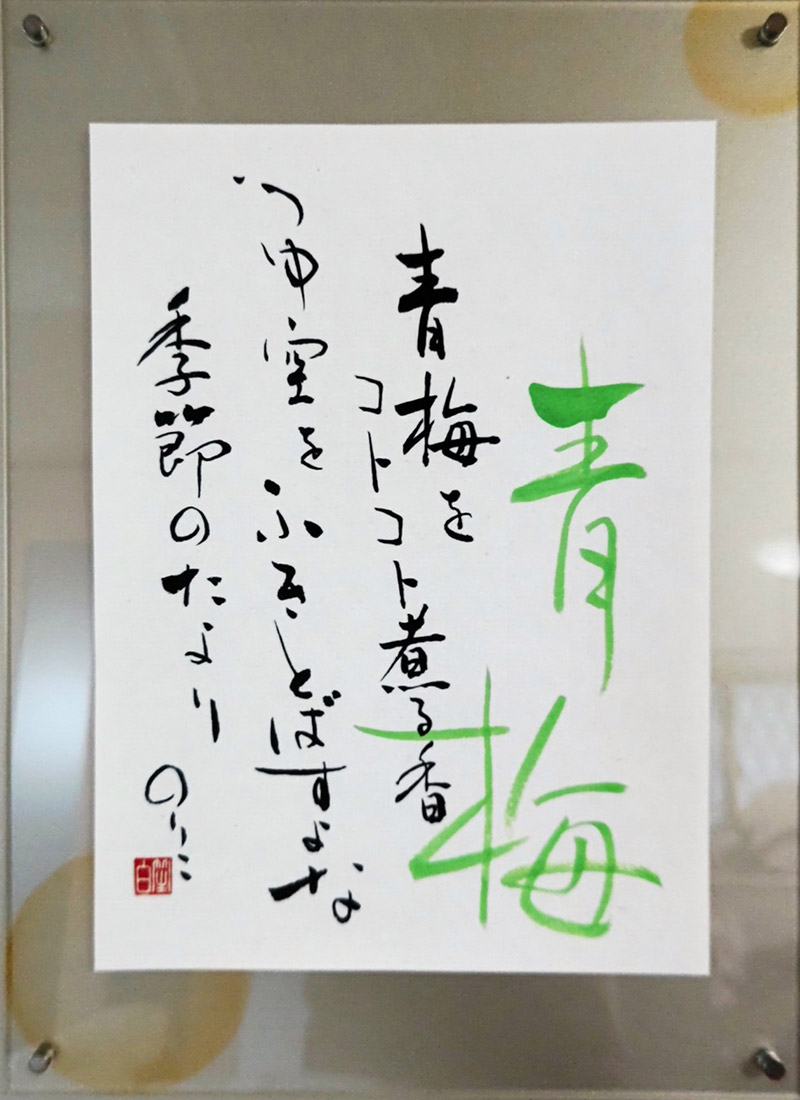 青梅
青梅を
コトコト煮る香
つゆ空をふきとばすよな
季節のたより
のりこ